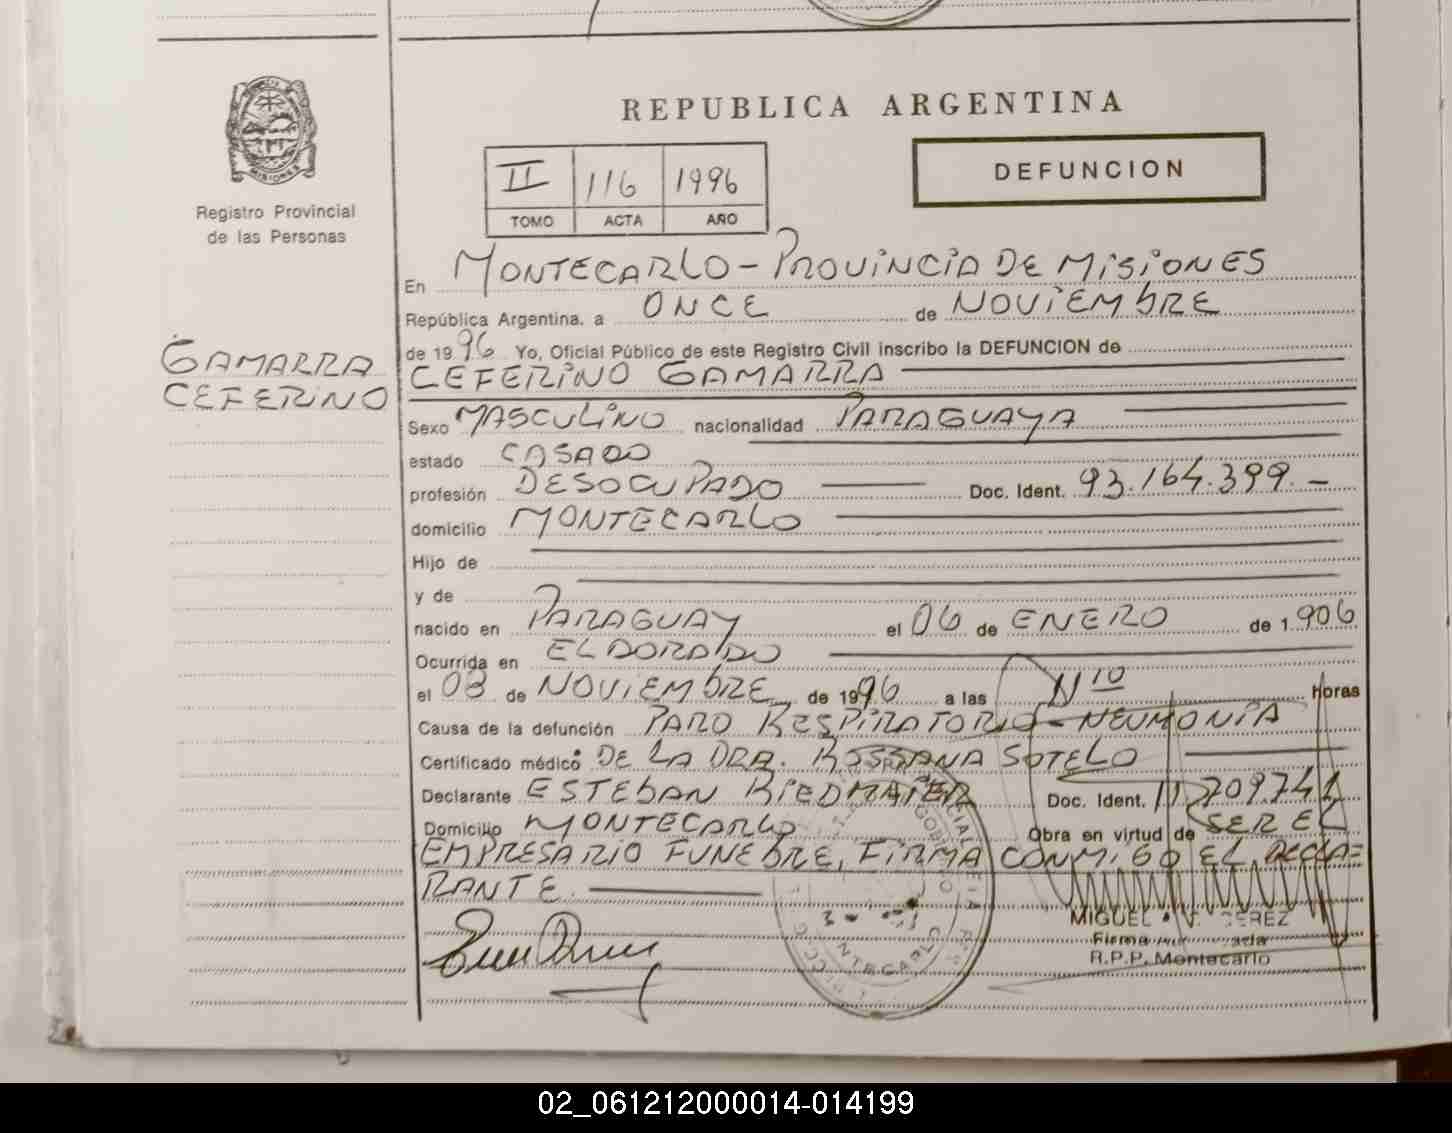 REPUBLICA ARGENTINA
MISIONES
Registro Provincial
de las Personas
II 116 1996
TOMO ACTA AÑO
DEFUNCION
En MONTECARLO - PROVINCIA DE MISIONES
República Argentina. a ONCE de NOVIEMBRE
de 1996 Yo, Oficial Público de este Registro Civil inscribo la DEFUNCION de
GAMARRA
CEFERINO
CEFERINO GAMARRA
Sexo MASCULINO nacionalidad PARAGUAYA
estado CASADO
profesión DESOCUPADO Doc. Ident. 93.164.399.-
domicilio MONTECARLO
Hijo de
y de
nacido en PARAGUAY el 06 de ENERO de 1.906
Ocurrida en ELDORADO
el 08 de NOVIEMBRE de 1996 a las horas
Causa de la defunción PARO RESPIRATORIO - NEUMONIA
Certificado médico DE LA DRA. ROSSANA SOTELO
Declarante ESTEBAN RIEDMAIER Doc. Ident.
Domicilio MONTECARLO Obra en virtud de SER EL
EMPRESARIO FUNEBRE, FIRMA CONMIGO EL DECLA=
RANTE.
MIGUEL
Firma
R.P.P. Montecarlo
02_061212000014-014199